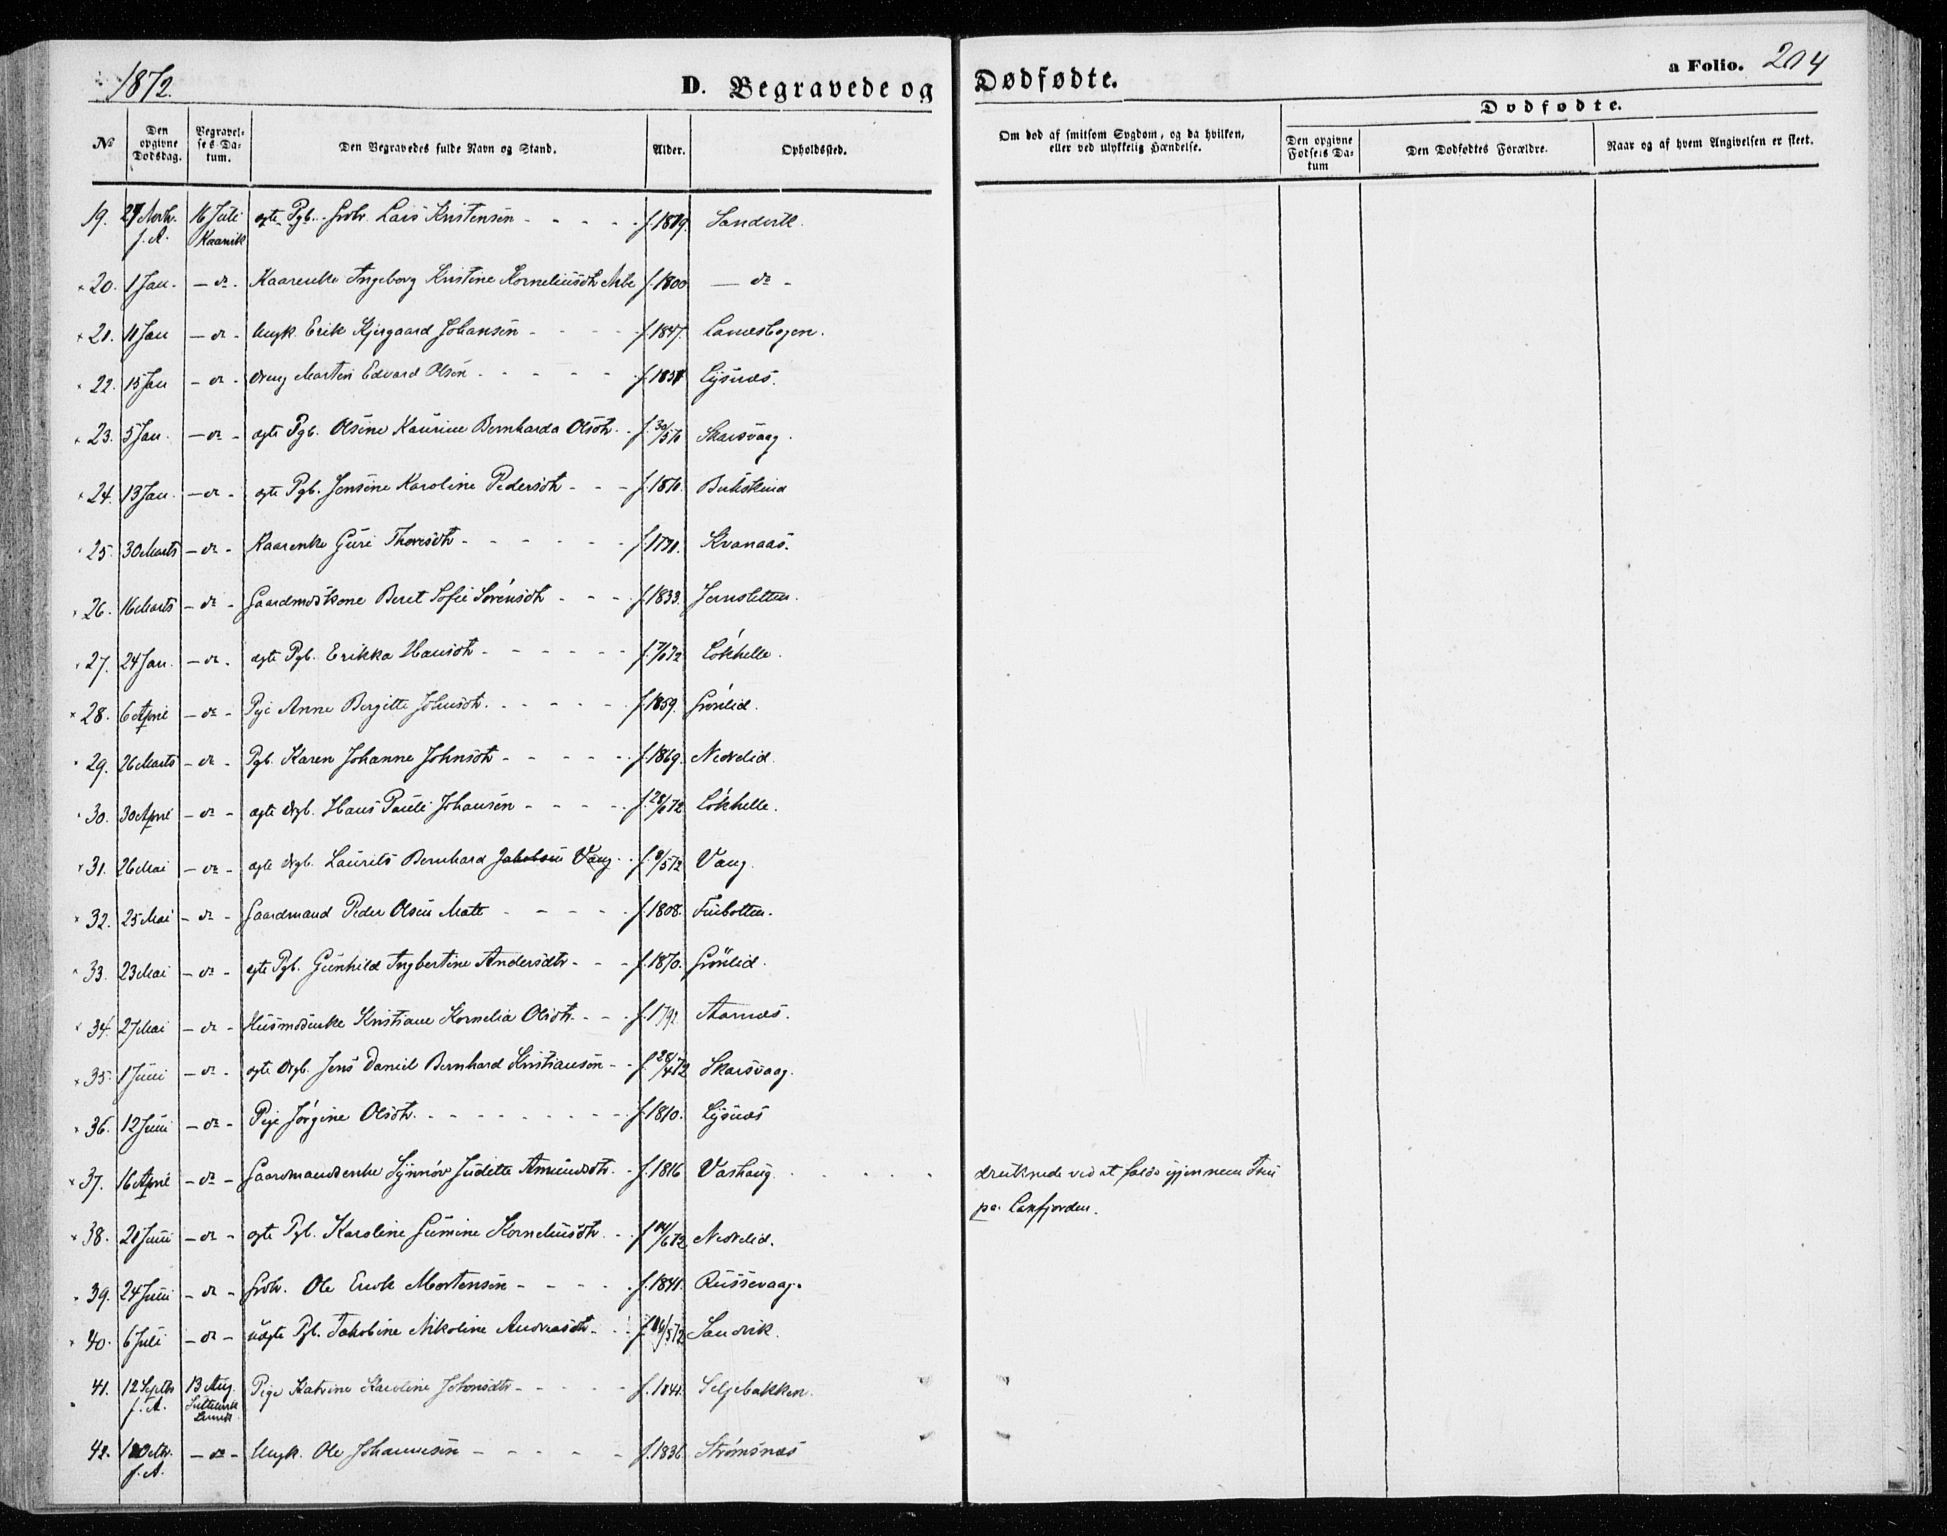 1872.
D. Begravede og Dødfødte.
a Folio. 204
Dødfødte.
No
Den opgivne Dødsdag.
Begravelses-Datum.
Den Begravedes fulde Navn og Stand.
Alder.
Opholdssted.
Om død af smitsom Sygdom, og da hvilken, eller ved ulykkelig Hændelse.
Den opgivne Fødsels Datum
Den Dødfødtes Forældre.
Naar og af hvem Angivelsen er skeet.
19. f. A. 16 Juli Kaarvik ægte Lars Kristensen f. 1819.
20. 1 Jan. - do - Kaarenke Ingeborg Kristine Korneliusdtr f. 1800 - do -
21. 11 Jan - do - Ungk. Erik Kjergaard Johansen f. 1847.
22. 15 Jan - do - Dreng Martin Edvard Olsen Lysnæs.
23. 5 Jan. - do - ægte Pgb. Olsine Laurine Bernharda Olsdtr. Skarsvaag.
24. 13 Jan. - do - ægte Pgb. Jensine Karoline Pedersdtr f. 1870. Bukskind
25. 30 Marts - do - Kaarenke Guri Thoresdtr Kvanaas.
26. 16 Marts - do - Gaardmdskone Beret Sofie Sørensdtr f. 1833. Jernsletten.
27. 24 Jan. - do - ægte Pgb. Erikka Hansdtr Løkhelle.
28. 6 April - do - Pige Anne Bergitte Johnsdtr. f. 1859. Grønlid.
29. 26 Marts - do - Pgb. Karen Johanne Johnsdtr f. 1869. Nedrelid.
30. 30 April - do - ægte Drgb. Hans Pauli Johansen Løkhelle.
31. 26 Mai - do - ægte Drgb. Laurits Bernhard Jakobsen Vang. f. 9/5 72 Vang.
32. 25 Mai - do - Gaardmand Peder Olsen f. 1808. Finbotten.
33. 23 Mai - do - ægte Pgb. Gunhild Ingbertine Andersdtr f. 1870. Grønlid.
34. 27 Mai - do - Husmdsenke Kristiane Kornelia Olsdtr. f. 1792. Aarnæs.
35. 1 Juni - do - ægte Drgb. Jens Daniel Bernhard Kristiansen f. 28/4 72 Skarsvaag.
36. 12 Juni - do - Pige Jørgine Olsdtr. f. 1810. Lysnæs
37. 16 April - do - Gaardmandsenke Synnøv Juditte Amundsdtr. f. 1816 Vashaug druknede ved at falde igjennem Isen
paa Laxfjorden.
38. 21 Juni - do - ægte Pgb. Karoline Gurine Korneliusdtr. Nedrelid.
39. 24 Juni - do - Ole Erik Mortensen f. 1841. Russevaag.
40. 6 Juli - do - uægte Pgb. Jakobine Nikoline Andreasdtr. Sandvik.
41. 12 Septbr f. A. 13 Aug. Pige Katrine Karoline Johnsdtr f. 1841. Seljebakken.
42. f. A. - do - Ungk. Ole Johannesen f. 1836. Strømsnæs